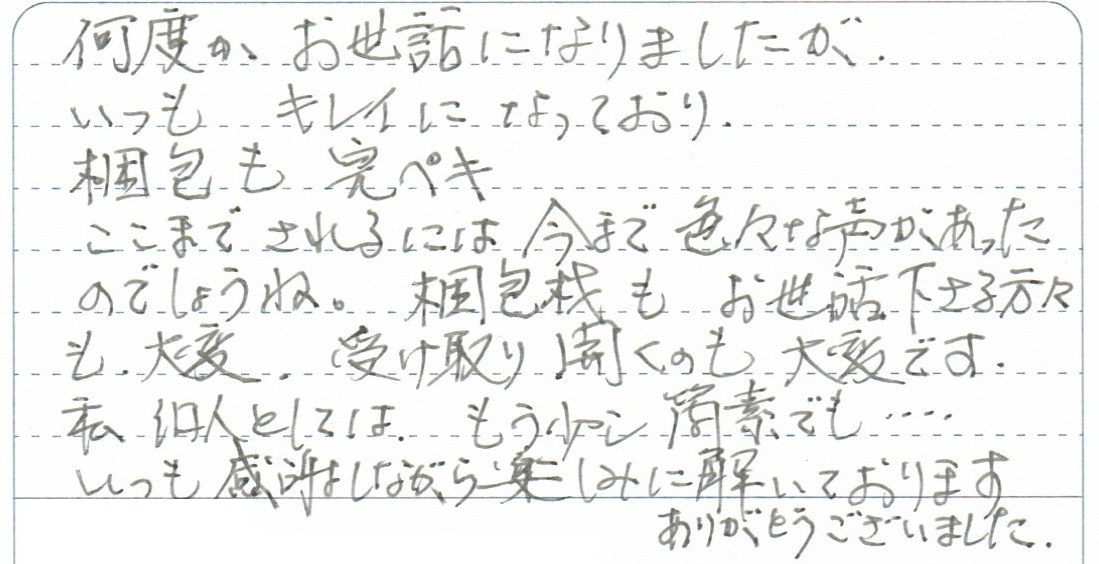 何度か、お世話になりましたが.
いつも キレイになっており.
梱包も 完ペキ
ここまで されるには 今まで 色々な声があった
のでしょうね。 梱包材も お世話下さる方々
も. 大変. 受け取り 開くのも 大変です.
私 個人としては. もう少し 簡素でも・・・・
いつも 感謝しながら 楽しみに 解いております
ありがとうございました.